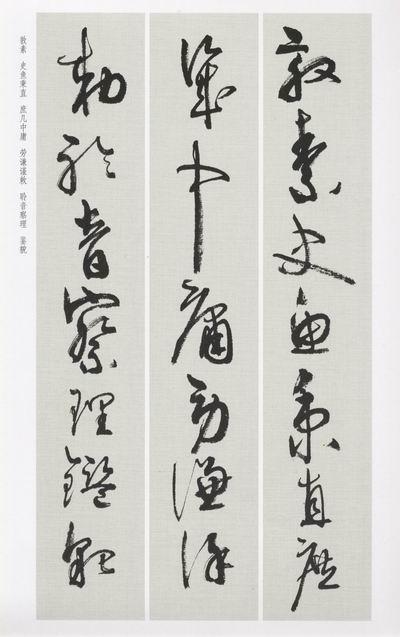 敦素史魚秉直庶
幾中庸勞謙謹
勅聆音察理鑑貌
敦素 史鱼秉直 庶几中庸 劳谦谨敕 聆音察理 鉴貌